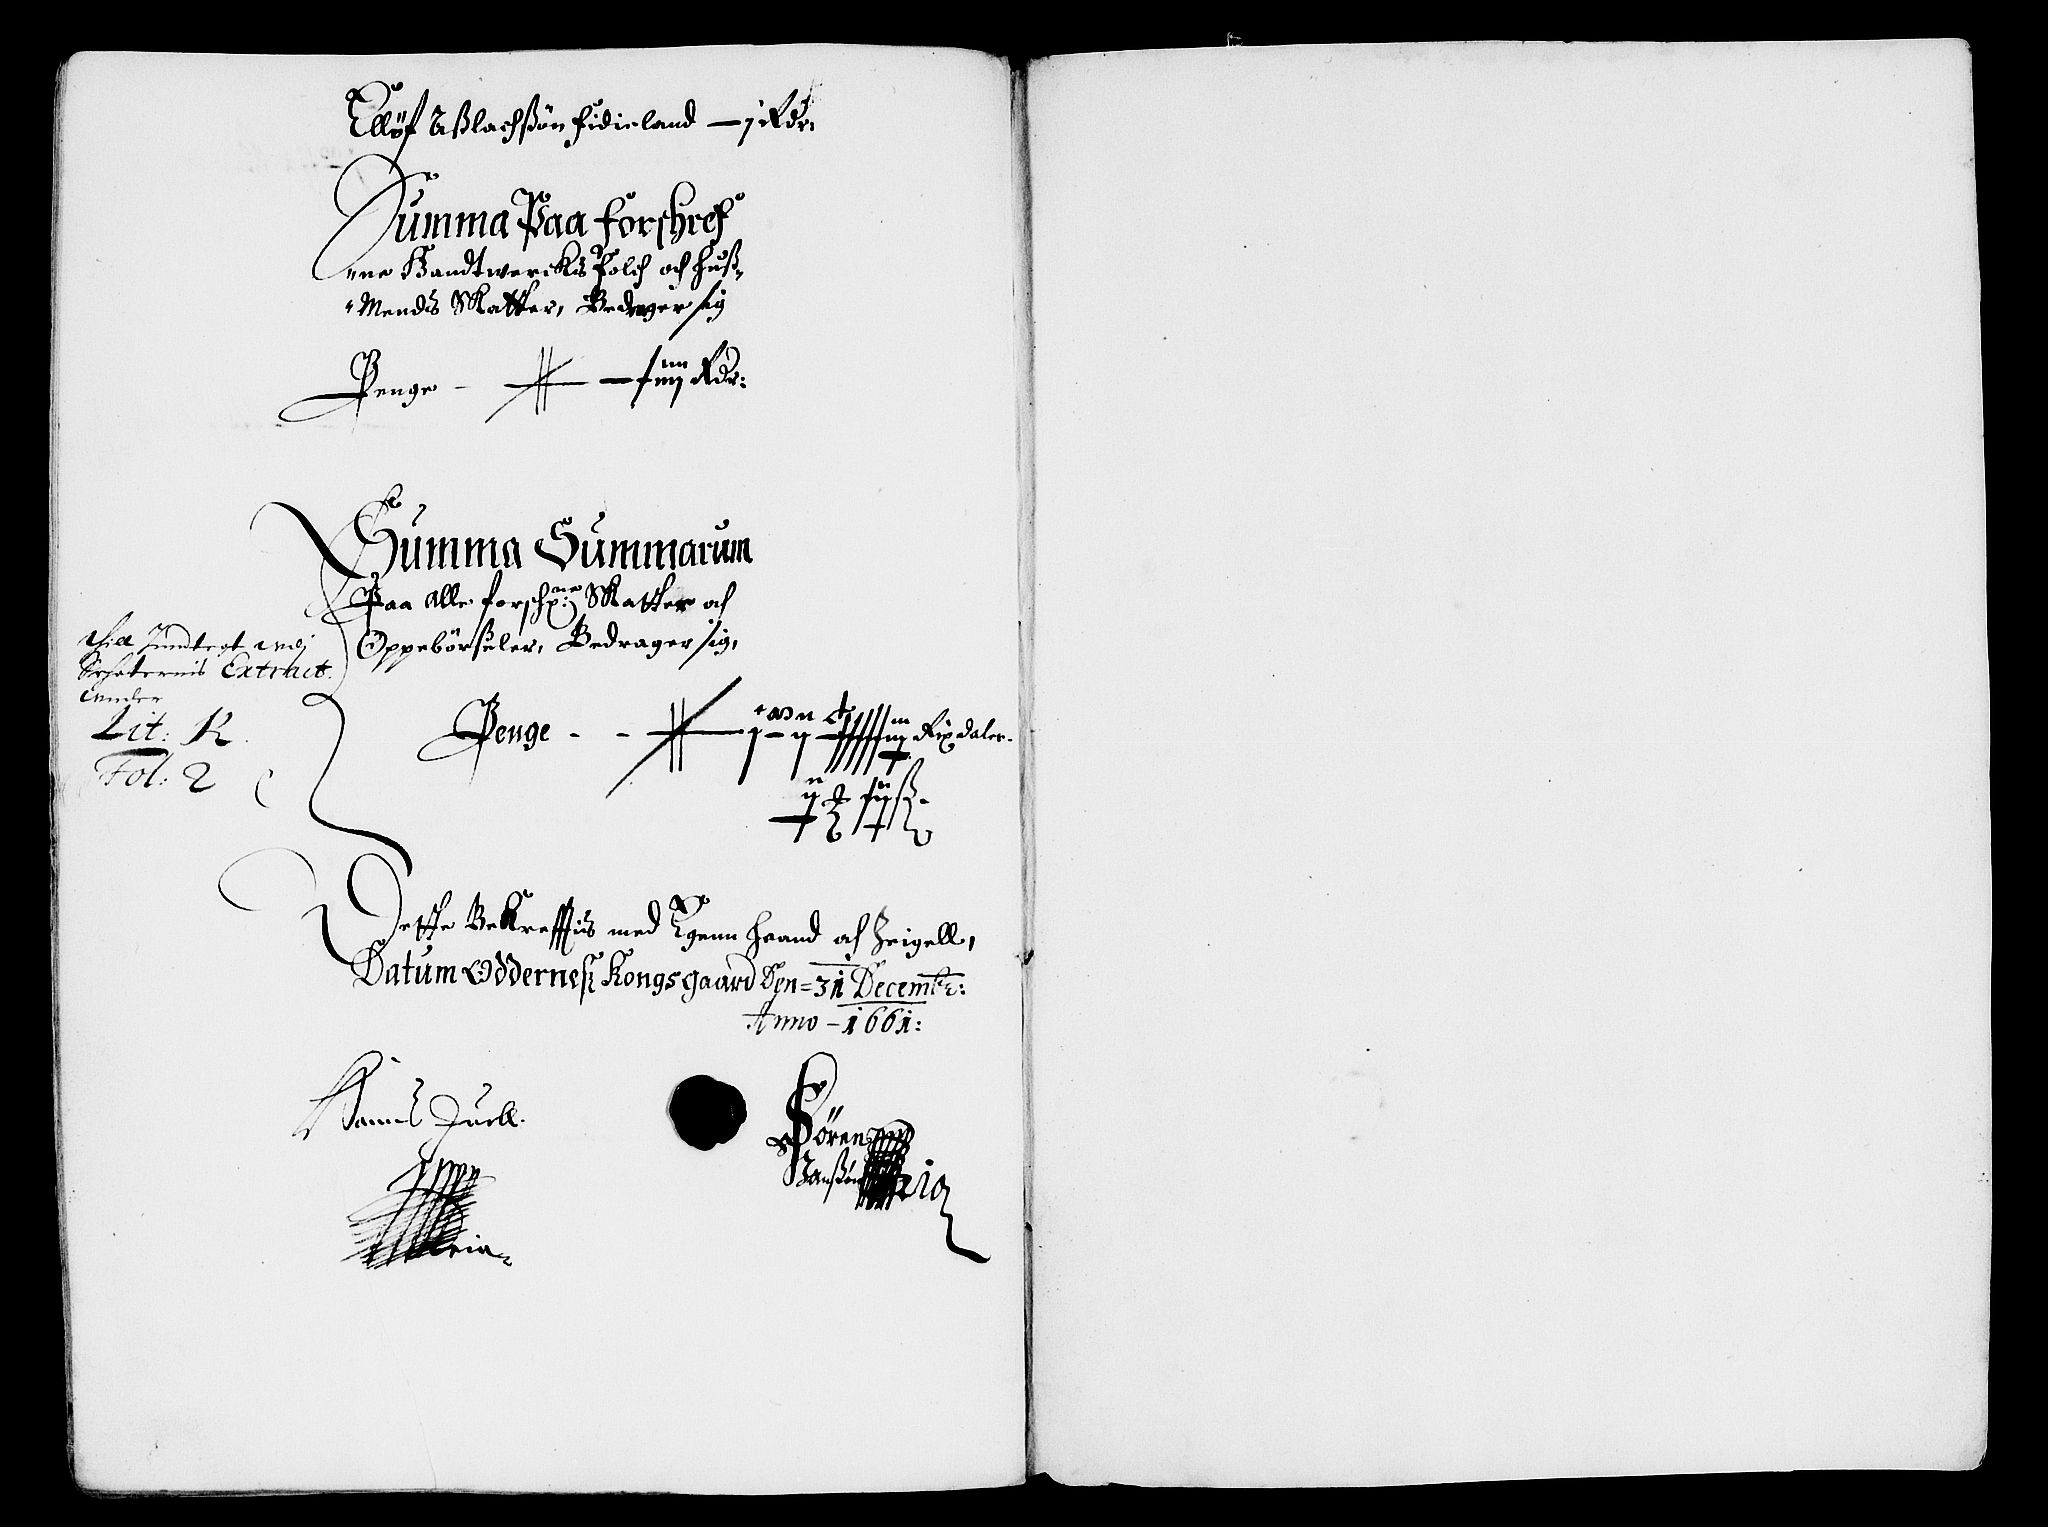 Ellöf Aßlachßön fidieland — j Rdr:
Summa Paa forschref
"ne Handtwercks folch och huß„
"Mends Skatter, Bedrager sig
Penge — Rdr:
Summa Summarum
Paa alle forschr:ne Skatter och
Oppebörßeler, Bedrager sig,
Penge - - Rixdaler-
ß
Indtegt
Extract.
under
Lit: R.
Fol: 2
Dette Bekrefftis med Egenn haand och Zeigell,
Datum Oddernes Kongsgaard Den = 31 Decembr:
Anno - 1661:
Hanns Juell.
Sören
Hanßön